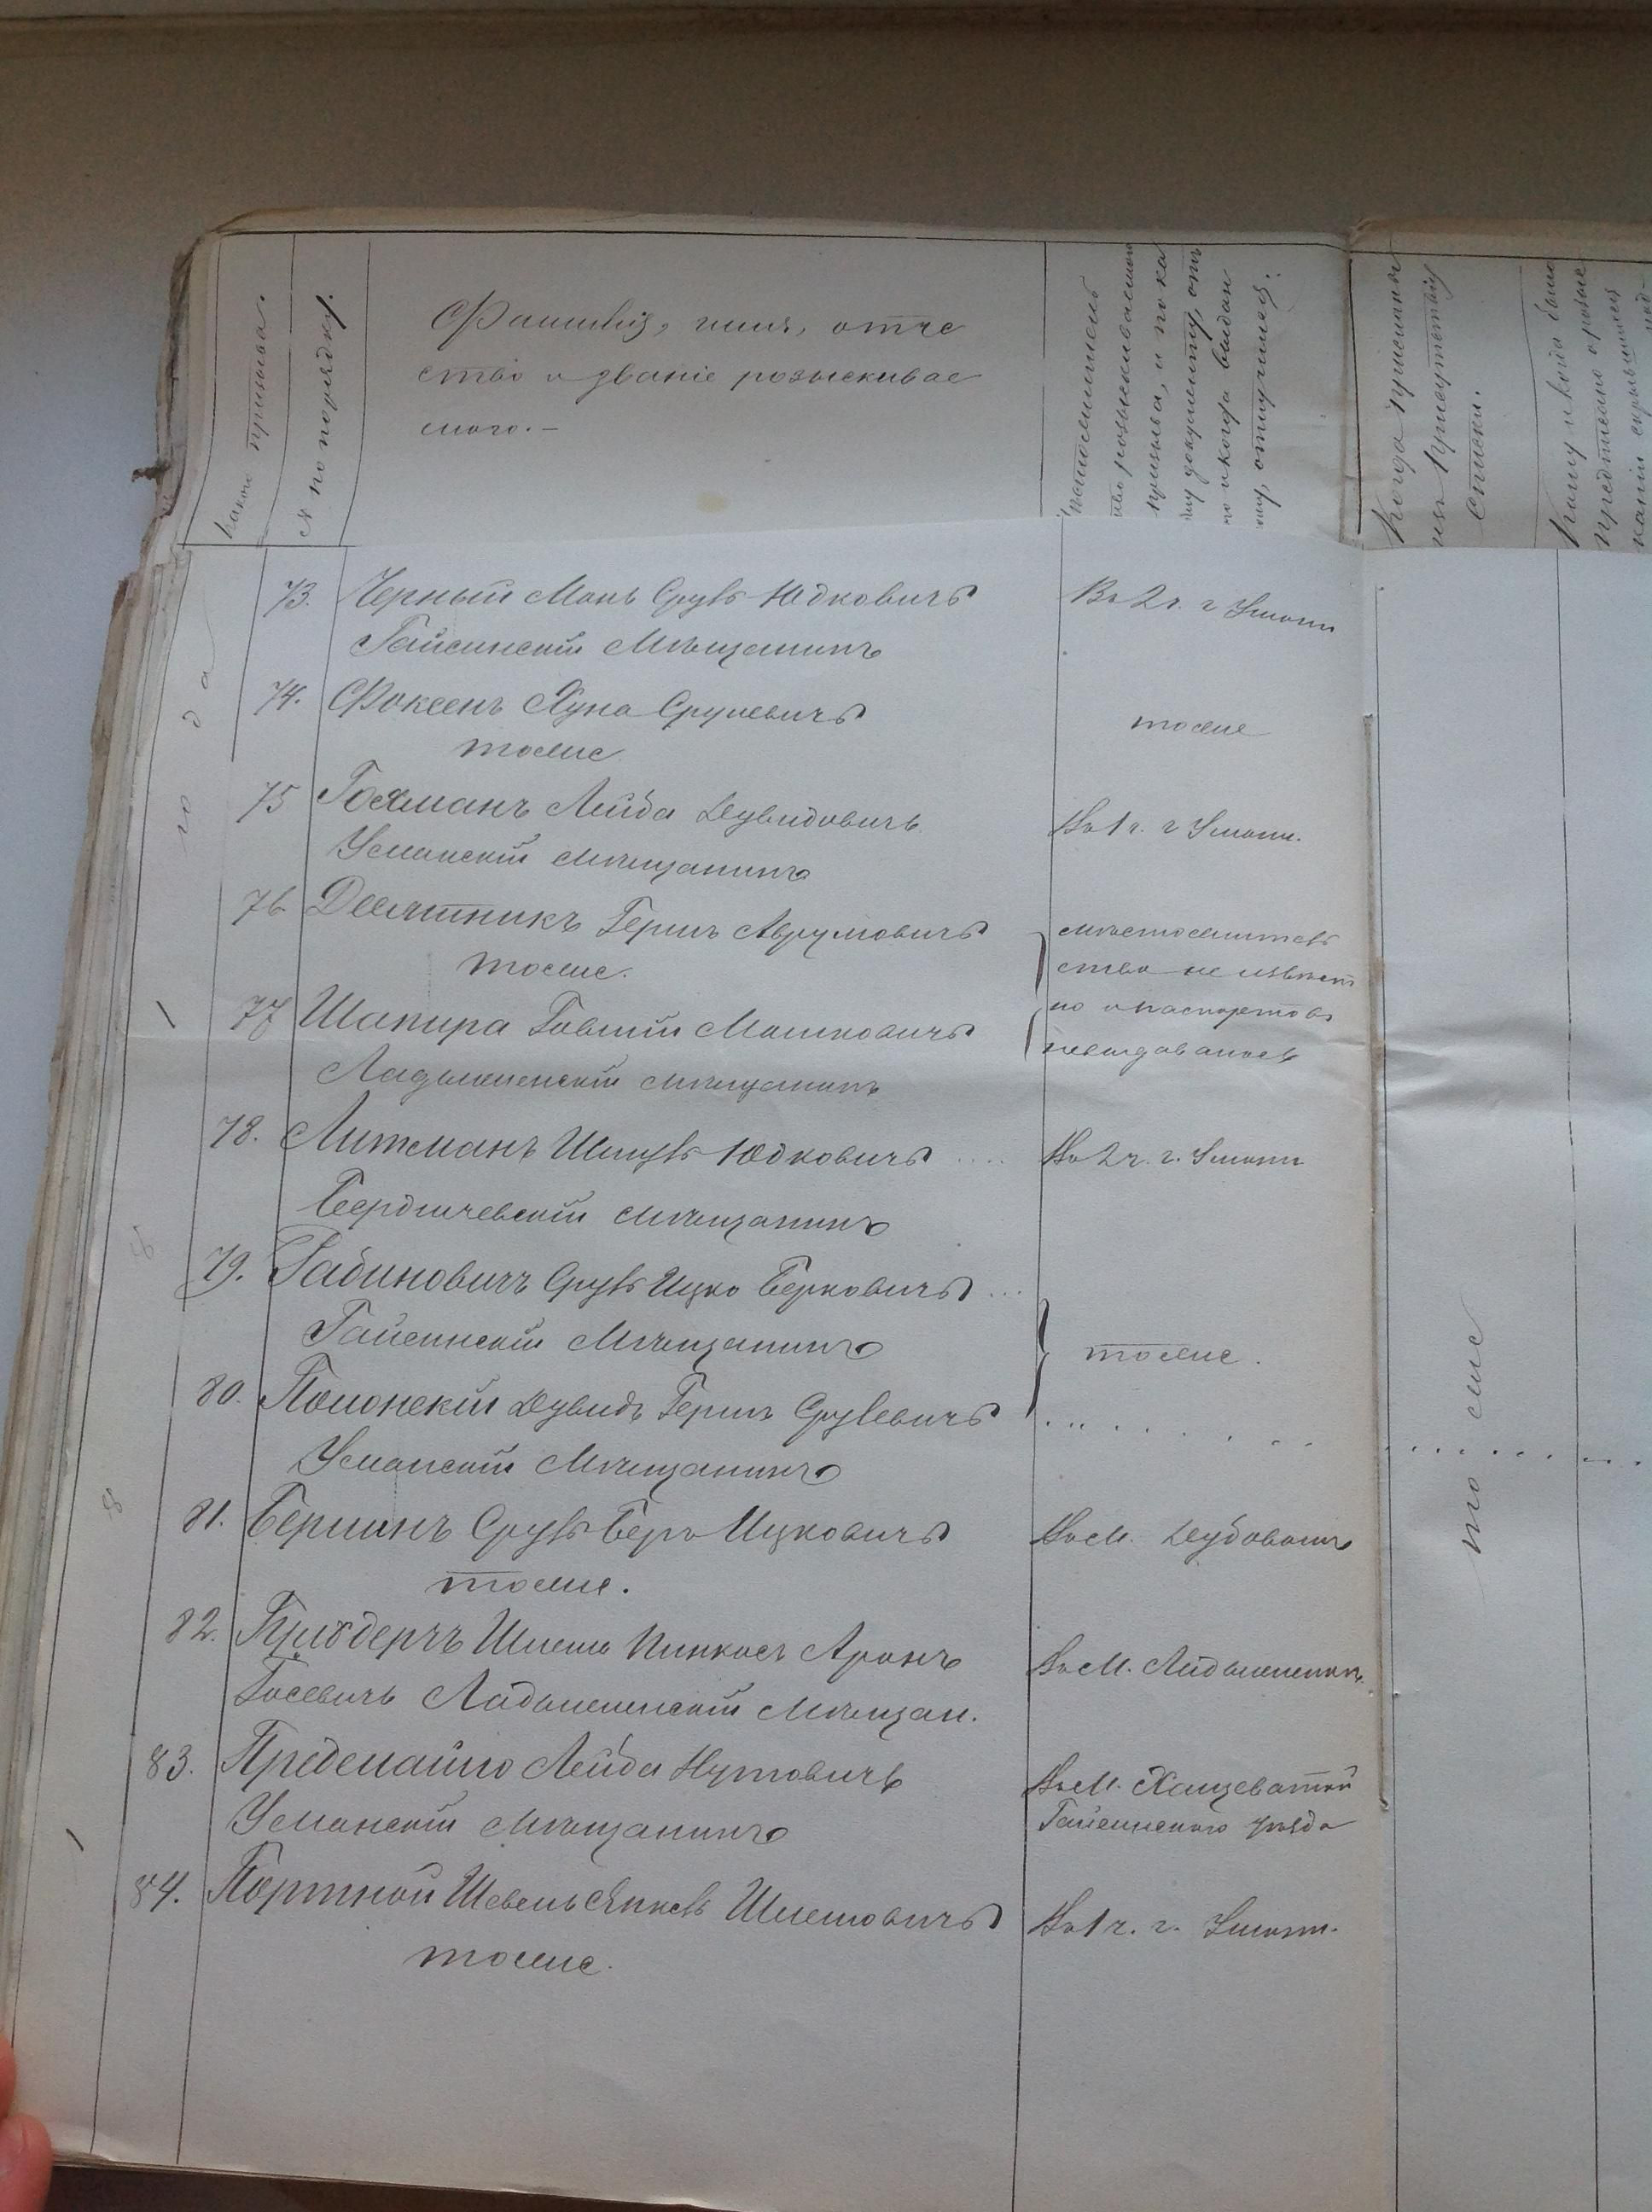 Какого призыва.
№ по порядку.
Фамилія, имя, отче
ство и званіе розыскивае
мого. —
розыскиваемый
призыва, и по ка
му документу, отъ
го и когда выданъ
Когда присланы
изъ Присутствія
списки.
Кому и когда было
предписано о розыс
каніи
73. Черный Мань Сруль Юдковичъ
Гайсинскій Мѣщанинъ
Во 2 ч. г Умани
74. Фоксенъ Хуна Срулевичъ
тоже
тоже
75 Гохманъ Лейба Дувидовичъ
Уманскій мѣщанинъ
Въ 1 ч. г Умани.
76 Десятникъ Гершъ Аврумовичъ
тоже.
мѣстожитель
ство не извѣст
но и паспортовъ
невыдавалось
77 Шапира Мошковичъ
Ладыженскій мѣщанинъ
78. Литманъ Шмуль Юдковичъ ....
Бердичевскій мѣщанинъ
Во 2 ч. г. Умани
79. Рабиновичъ Сруль Ицко Берковичъ ...
Гайсинскій Мѣщанинъ
тоже.
80. Полонскій Дувидъ Гершъ Срулевичъ
Уманскій Мѣщанинъ
81. Берманъ Сруль Беръ Ицковичъ
тоже.
Въ М. Дубовомъ
82. Шлема Пинкасъ Аронъ
Ладыженскій Мѣщан.
Въ М. Ладыженкѣ
83. Лейба Нутовичъ
Уманскій мѣщанинъ
Въ М. Хащеватой
Гайсинского уѣзда
84. Портной Шевель Янкель Шлемовичъ
тоже.
Въ 1 ч. г. Умани.
то же
года